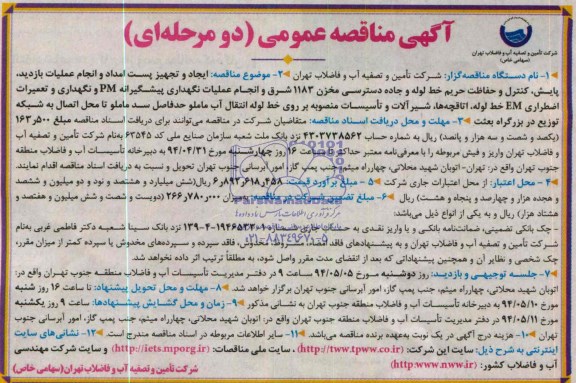 آگهی مناقصه عمومی (دو مرحله‌ای)
شرکت تأمین و تصفیه آب و فاضلاب تهران
(سهامی خاص)
۱- نام دستگاه مناقصه‌گزار: شرکت تأمین و تصفیه آب و فاضلاب تهران ۲- موضوع مناقصه: ایجاد و تجهیز پست امداد و انجام عملیات بازدید،
پایش، کنترل و حفاظت حریم خط لوله و جاده دسترسی مخزن ۱۱۸۳ شرق و انجام عملیات نگهداری پیشگیرانه PM و نگهداری و تعمیرات
اضطراری EM خط لوله، اتاقچه‌ها، شیرآلات و تأسیسات منصوبه بر روی خط لوله انتقال آب ماملو حدفاصل سد ماملو تا محل اتصال به شبکه
توزیع در بزرگراه بعثت ۳- مهلت و محل دریافت اسناد مناقصه: متقاضیان شرکت در مناقصه می‌توانند برای دریافت اسناد مناقصه مبلغ ۱۶۳٬۵۰۰
(یکصد و شصت و سه هزار و پانصد) ریال به شماره حساب ۴۲۰۳۷۳۸۵۶۲ نزد بانک ملت شعبه سازمان صنایع ملی کد ۶۳۵۴۵ به‌نام شرکت تأمین و تصفیه آب
و فاضلاب تهران واریز و فیش مربوطه را با معرفی‌نامه معتبر حداکثر تا ساعت ۱۶ روز چهارشنبه مورخ ۹۴/۰۴/۳۱ به دبیرخانه تأسیسات آب و فاضلاب منطقه
جنوب تهران واقع در: تهران- اتوبان شهید محلاتی، چهارراه میثم، جنب پمپ گاز، امور آبرسانی جنوب تهران تحویل و نسبت به دریافت اسناد مناقصه اقدام نمایند.
۴- محل اعتبار: از محل اعتبارات جاری شرکت ۵- مبلغ برآورد قیمت: ۶٬۸۹۲٬۶۱۸٬۴۵۸ ریال (شش میلیارد و هشتصد و نود و دو میلیون و ششصد
و هجده هزار و چهارصد و پنجاه و هشت) ریال ۶- مبلغ تضمین شرکت در مناقصه: ۲۶۶٬۷۸۰٬۰۰۰ (دویست و شصت و شش میلیون و هفتصد و
هشتاد هزار) ریال و به یکی از انواع ذیل می‌باشد:
چک بانکی تضمینی، ضمانت‌نامه بانکی و یا واریز نقدی به حساب جاری شماره نزد بانک سینا شعبه دکتر فاطمی غربی به‌نام
شرکت تأمین و تصفیه آب و فاضلاب تهران و به پیشنهادهای فاقد امضا، مشروط، مخدوش، فاقد سپرده و سپرده‌های مخدوش یا سپرده کمتر از میزان مقرر،
چک شخصی و نظایر آن و همچنین پیشنهاداتی که بعد از انقضای مدت مقرر واصل شود، به مطلقاً ترتیب اثر داده نخواهد شد.
۷- جلسه توجیهی و بازدید: روز دوشنبه مورخ ۹۴/۰۵/۰۵ ساعت ۹ در دفتر مدیریت تأسیسات آب و فاضلاب منطقه جنوب تهران واقع در:
اتوبان شهید محلاتی، چهارراه میثم، جنب پمپ گاز، امور آبرسانی جنوب تهران برگزار خواهد شد. ۸- مهلت و محل تحویل پیشنهاد: تا ساعت ۱۶ روز شنبه
مورخ ۹۴/۰۵/۱۰ به دبیرخانه تأسیسات آب و فاضلاب منطقه جنوب تهران به نشانی مذکور ۹- زمان و محل گشایش پیشنهادها: ساعت ۹ روز یکشنبه
مورخ ۹۴/۰۵/۱۱ در دفتر مدیریت تأسیسات آب و فاضلاب منطقه جنوب تهران واقع در: اتوبان شهید محلاتی، چهارراه میثم، جنب پمپ گاز، امور آبرسانی جنوب
تهران ۱۰- هزینه درج آگهی در یک نوبت به‌عهده برنده مناقصه می‌باشد. ۱۱- سایر اطلاعات مربوطه در اسناد مناقصه مندرج است. ۱۲- نشانی‌های سایت
اینترنتی به شرح ذیل: سایت این شرکت: (http://tww.tpww.co.ir)، سایت ملی مناقصات: (http://iets.mporg.ir) و سایت شرکت مهندسی
آب و فاضلاب کشور: (http:www.nww.ir)
شرکت تأمین و تصفیه آب و فاضلاب تهران (سهامی خاص)